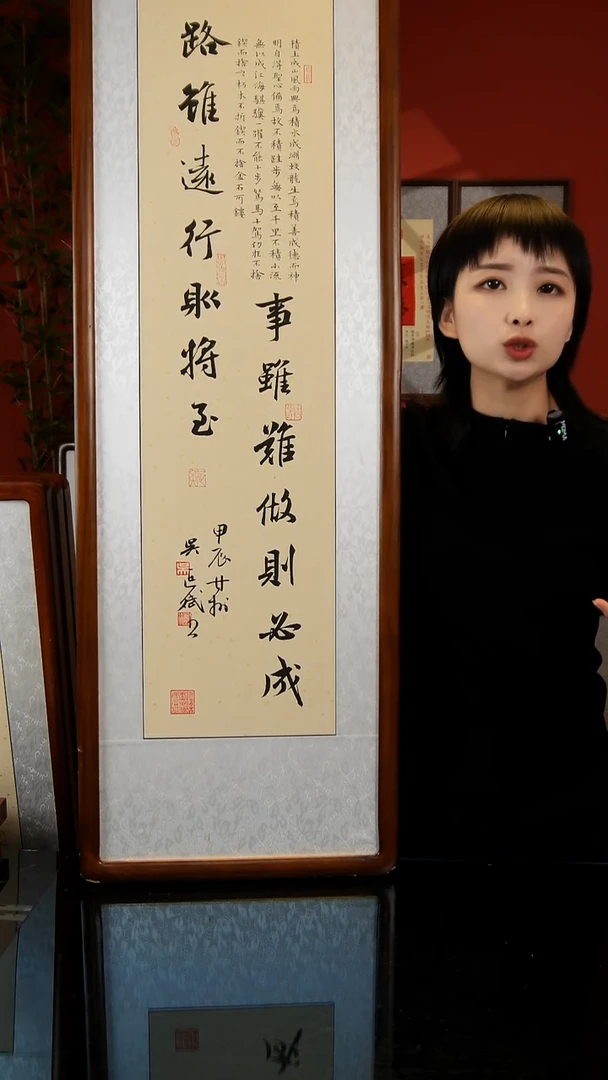 積土成山風雨興焉積水成淵蛟龍生焉積善成德而神
明自得聖心備焉故不積跬步無以至千里不積小流
無以成江海騏驥一躍不能十步駑馬十駕功在不捨
鍥而捨之朽木不折鍥而不捨金石可鏤
事雖難做則必成
路雖遠行則將至
甲辰
吳